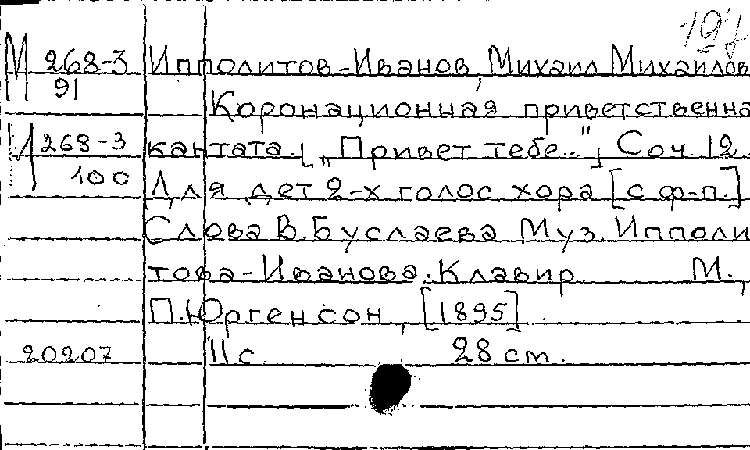 197
М 268-3 Ипполитов-Иванов, Михаил Михайлов
91 Коронационная приветственна
М 268-3 кантата. [„Привет тебе.."] Соч 12.
100 Для дет 2-х голос хора [с ф-п.]
Слова В.Буслаева Муз. Ипполи
това-Иванова. Клавир М.,
П.Юргенсон, [1895]
20207 11 с. 28 см.